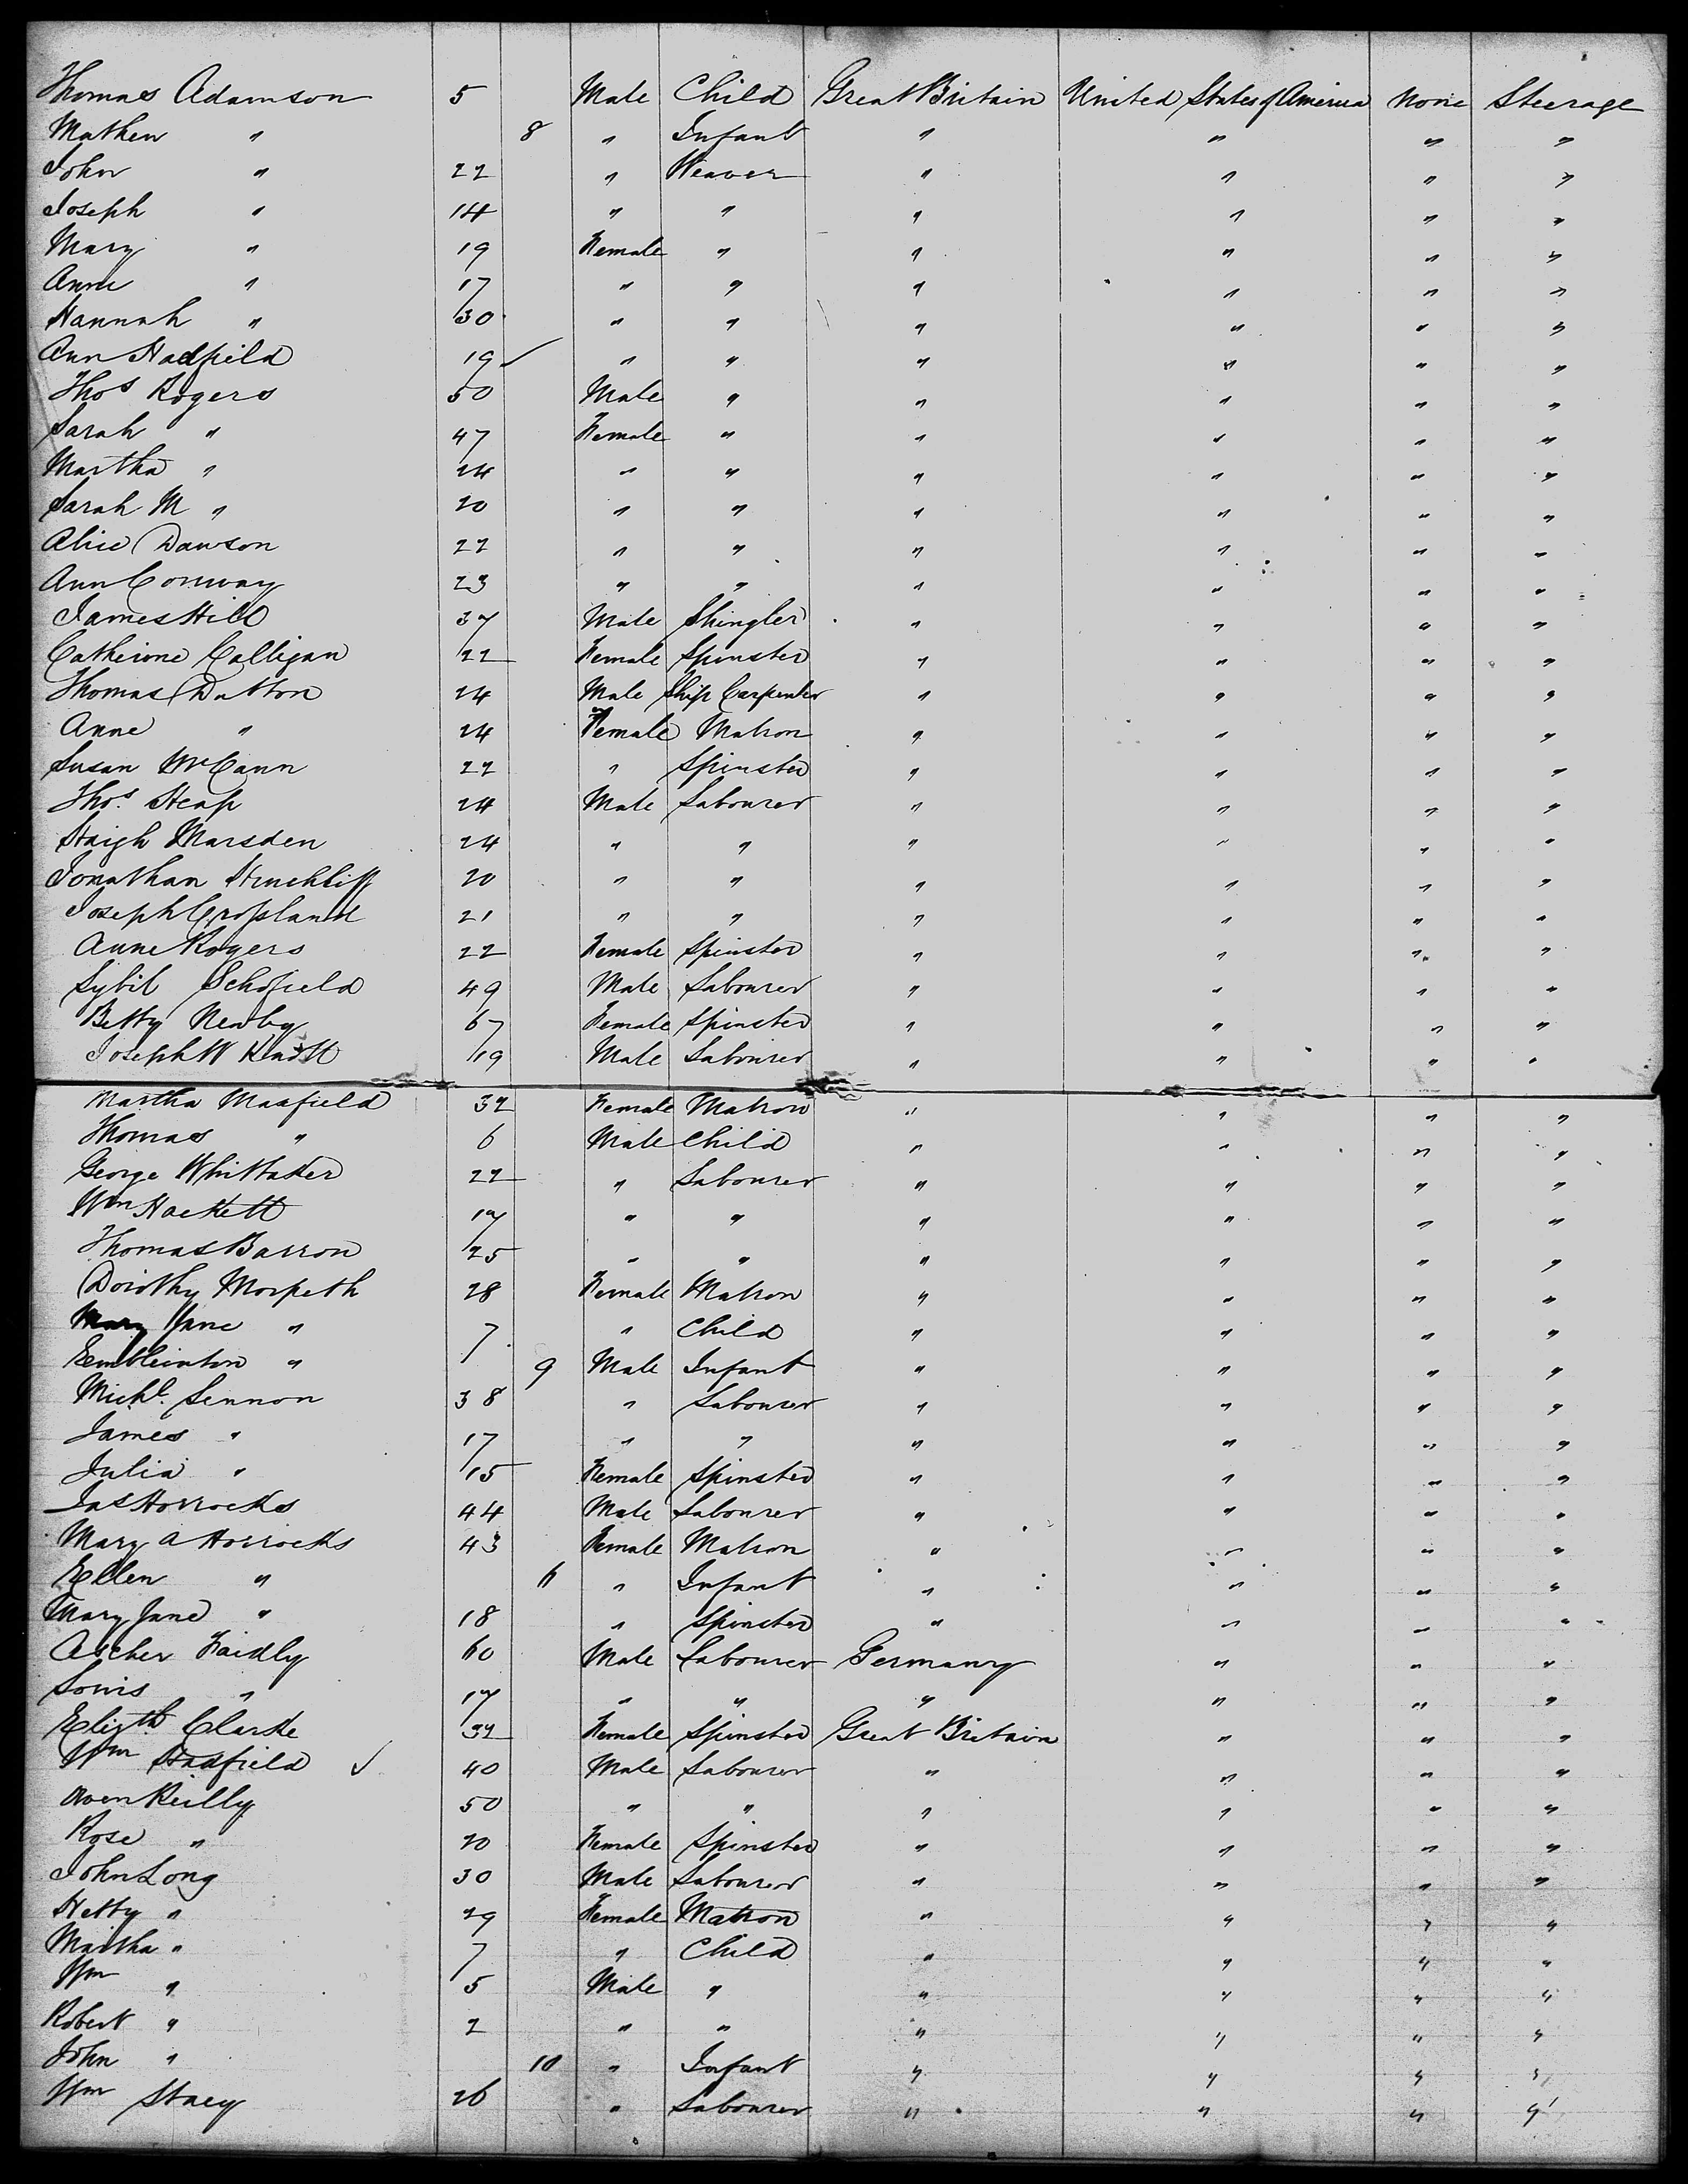 Thomas Adamson 5 Male Child Great Britain United States of America None Steerage
Mathew " 8 " Infant " " " "
John " 22 " Weaver " " " "
Joseph " 14 " " " " " "
Mary " 19 Female " " " " "
Anne " 17 " " " " " "
Hannah " 30 " " " " " "
Ann Hadfield 19 ✓ " " " " " "
Thos Rogers 50 Male " " " " "
Sarah " 47 Female " " " " "
Martha " 24 " " " " " "
Sarah M " 20 " " " " " "
Alice Dawson 22 " " " " " "
Ann Conway 23 " " " " " "
James Hill 37 Male Shingler " " " "
Catherine Calligan 22 Female Spinster " " " "
Thomas Dutton 24 Male Ship Carpenter " " " "
Anne " 24 Female Matron " " " "
Susan McCann 22 " Spinster " " " "
Thos. Heap 24 Male Labourer " " " "
Haigh Marsden 24 " " " " " "
Jonathan Hinchliff 20 " " " " " "
Joseph Crossland 21 " " " " " "
Anne Rogers 22 Female Spinster " " " "
Sybil Schofield 49 Male Labourer " " " "
Betty Newby 67 Female Spinster " " " "
Joseph W 19 Male Labourer " " " "
Martha Maafield 32 Female Matron " " " "
Thomas " 6 Male Child " " " "
George Whittaker 22 " Labourer " " " "
Wm Hackett 17 " " " " " "
Thomas Barron 25 " " " " " "
Dorothy Morpeth 28 Female Matron " " " "
Mary Jane " 7 " Child " " " "
Embleinton " 9 Male Infant " " " "
Michl. Lennon 38 " Labourer " " " "
James " 17 " " " " " "
Julia " 15 Female Spinster " " " "
Jas Horrocks 44 Male Labourer " " " "
Mary A Horrocks 43 Female Matron " " " "
Ellen " 6 " Infant " " " "
Mary Jane " 18 " Spinster " " " "
Ascher Faidly 60 Male Labourer Germany " " "
Louis " 17 " " " " " "
Elizth Clarke 32 Female Spinster Great Britain " " "
Wm Hadfield ✓ 40 Male Labourer " " " "
Owen Reilly 50 " " " " " "
Rose " 20 Female Spinster " " " "
John Long 30 Male Labourer " " " "
Hetty " 29 Female Matron " " " "
Martha " 7 " Child " " " "
Wm " 5 Male " " " " "
Robert " 2 " " " " " "
John " 10 " Infant " " " "
Wm Stacy 26 " Labourer " " " "